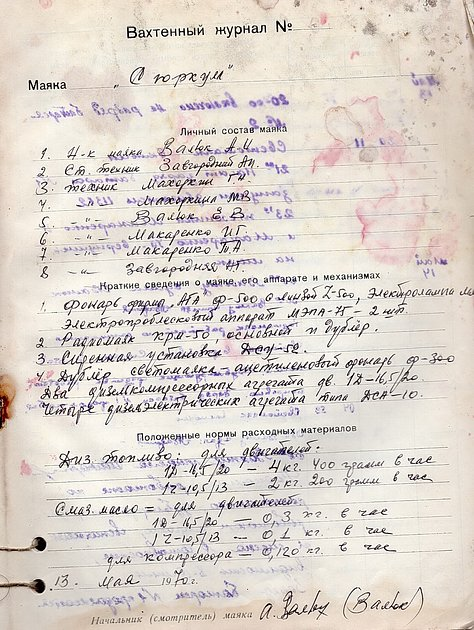 Вахтенный журнал №
Маяка „Сюркум"
Личный состав маяка
1. Н-к маяка Валюк А И.
2. Ст техник Завгородний А И.
3. техник Махоркин Г. И.
4. -"- Махоркина М З
5. -"- Валюк Е В
6 -"- Макаренко И Г.
7 -"- Макаренко Т А
8 -"- Завгородняя
Краткие сведения о маяке, его аппарате и механизмах
1. Фонарь фирм. АГА ф-500 с линзой Z-500, Электролампа
Электропроблесковый аппарат МЭПА-75 - 2 шт.
2 Радиомаяк КРМ-50, основной и дублер.
3. Сиренная установка
4. Дублёр светомаяка ацетиленовый фонарь ф-300
Два дизелькомпрессорных агрегата дв. 1Д-16,5/20
Четыре дизельэлектрических агрегата типа ДСА-10.
Положенные нормы расходных материалов
Диз. топливо: для двигателей:
1Д-16,5/20 - 4 кг. 400 грамм в час
1Ч-10,5/13 - 2 кг. 200 грамм в час
Смаз. масло = для двигателей
1Д-16,5/20 - 0,3 кг. в час
1Ч-10,5/13 - 0,1 кг. в час
для компрессора - 0,120 кг. в час
13. Мая 1970 г.
Начальник (смотритель) маяка А. Валюк (Валюк)